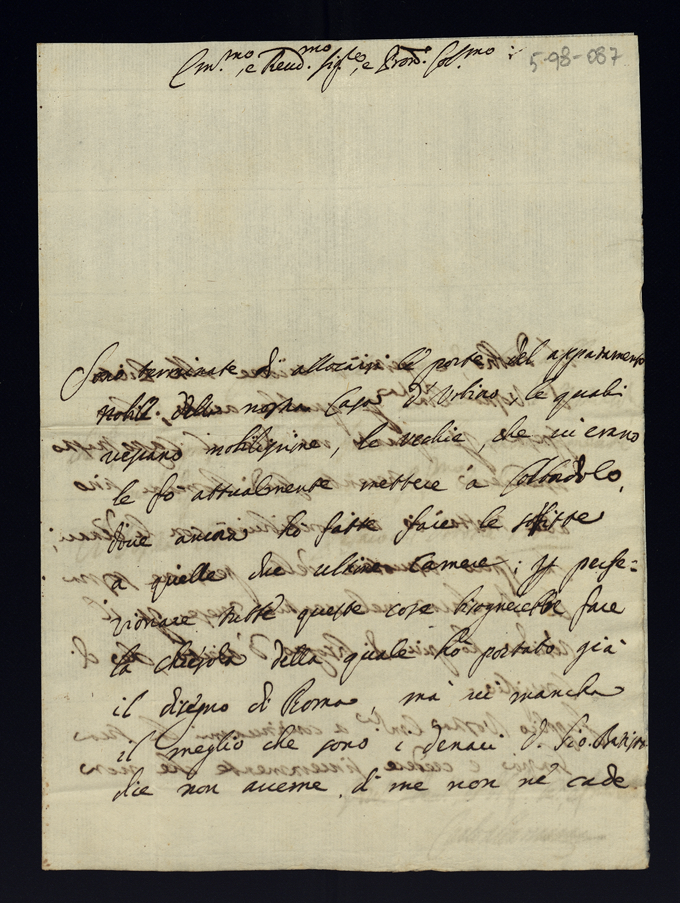 Em.mo, e Reud.mo Sig.re, e Pron. Col.mo
5-98-087
Sono terminate di allocarsi le porte del appartamento
nobile della nostra Casa d'Urbino le quali
vegano nobilissime, le vecchie, che ui erano
le fo attualmente mettere à Colbordolo,
doue ancora ho fatte fare le soffitte
à quelle due ultime Camere; p perfe=
zionare tutte queste cose bisognerebbe fare
la chiesola della quale hò portato già
il disegno di Roma, mà ui mancha
il meglio che sono i denari D. Gio. Batista
dice non auerne, di me non nè cade